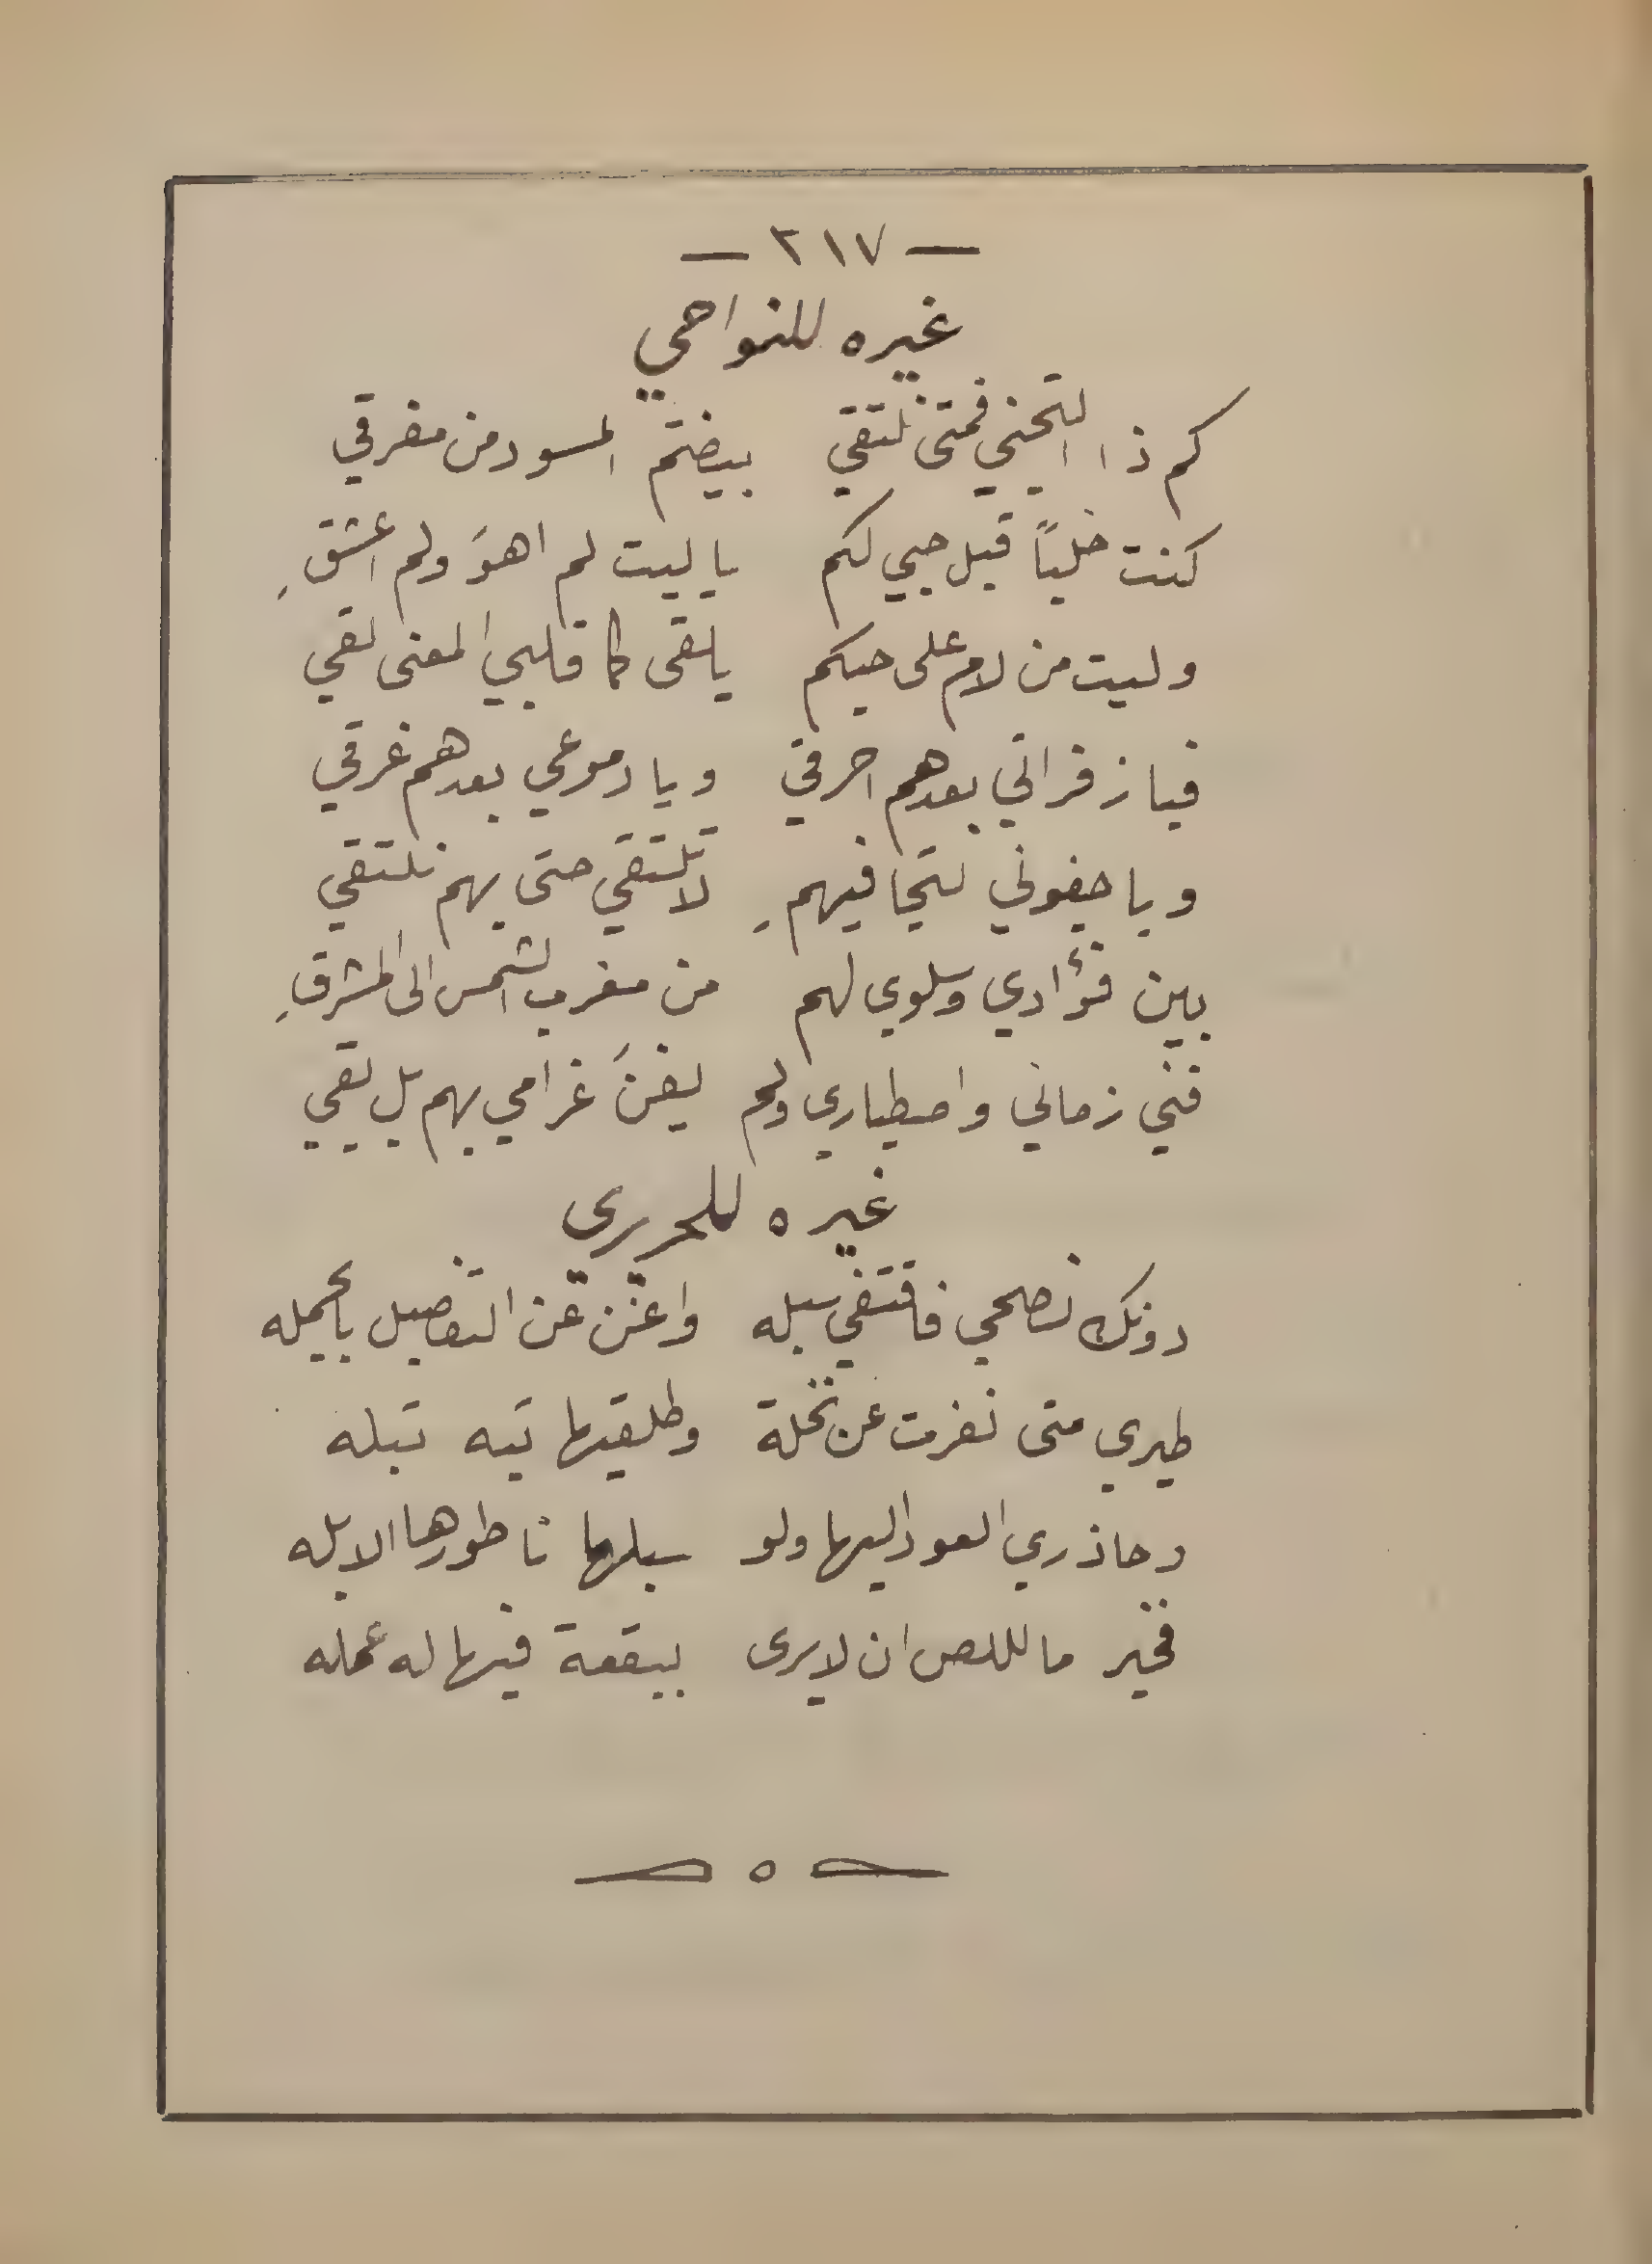 — ٢١٧ —
غيره للنواحي
كم ذا التجني فمتى نلتقي بيضتم المسود من مفرقي
كنت خلياً قبل حبي لكم يا ليت لم اهوَ ولم اعشقِ
وليت من لام على حبكم يلقى كما قلبي المعنى لقي
فيا زفراتي بعدهم احرقي ويا دموعي بعدهم غرقي
ويا جفوني لتجافيهمِ لا تلتقي حتى بهم نلتقي
بين فؤادي وسلوي لهم من مغرب الشمس الى المشرقِ
فني زماني واصطباري ولم يفنَ غرامي بهم بل بقي
غيره للحريري
دونك نصحي فاقتفي سبله واغنن عن التفاصيل بالجمله
طيري متى نفرت عن نخلة وطلقيها بته بتله
وحاذري العود اليها ولو سبلها ناطورها الابله
فخير ما للص ان لا يرى ببقعة فيها له عمله